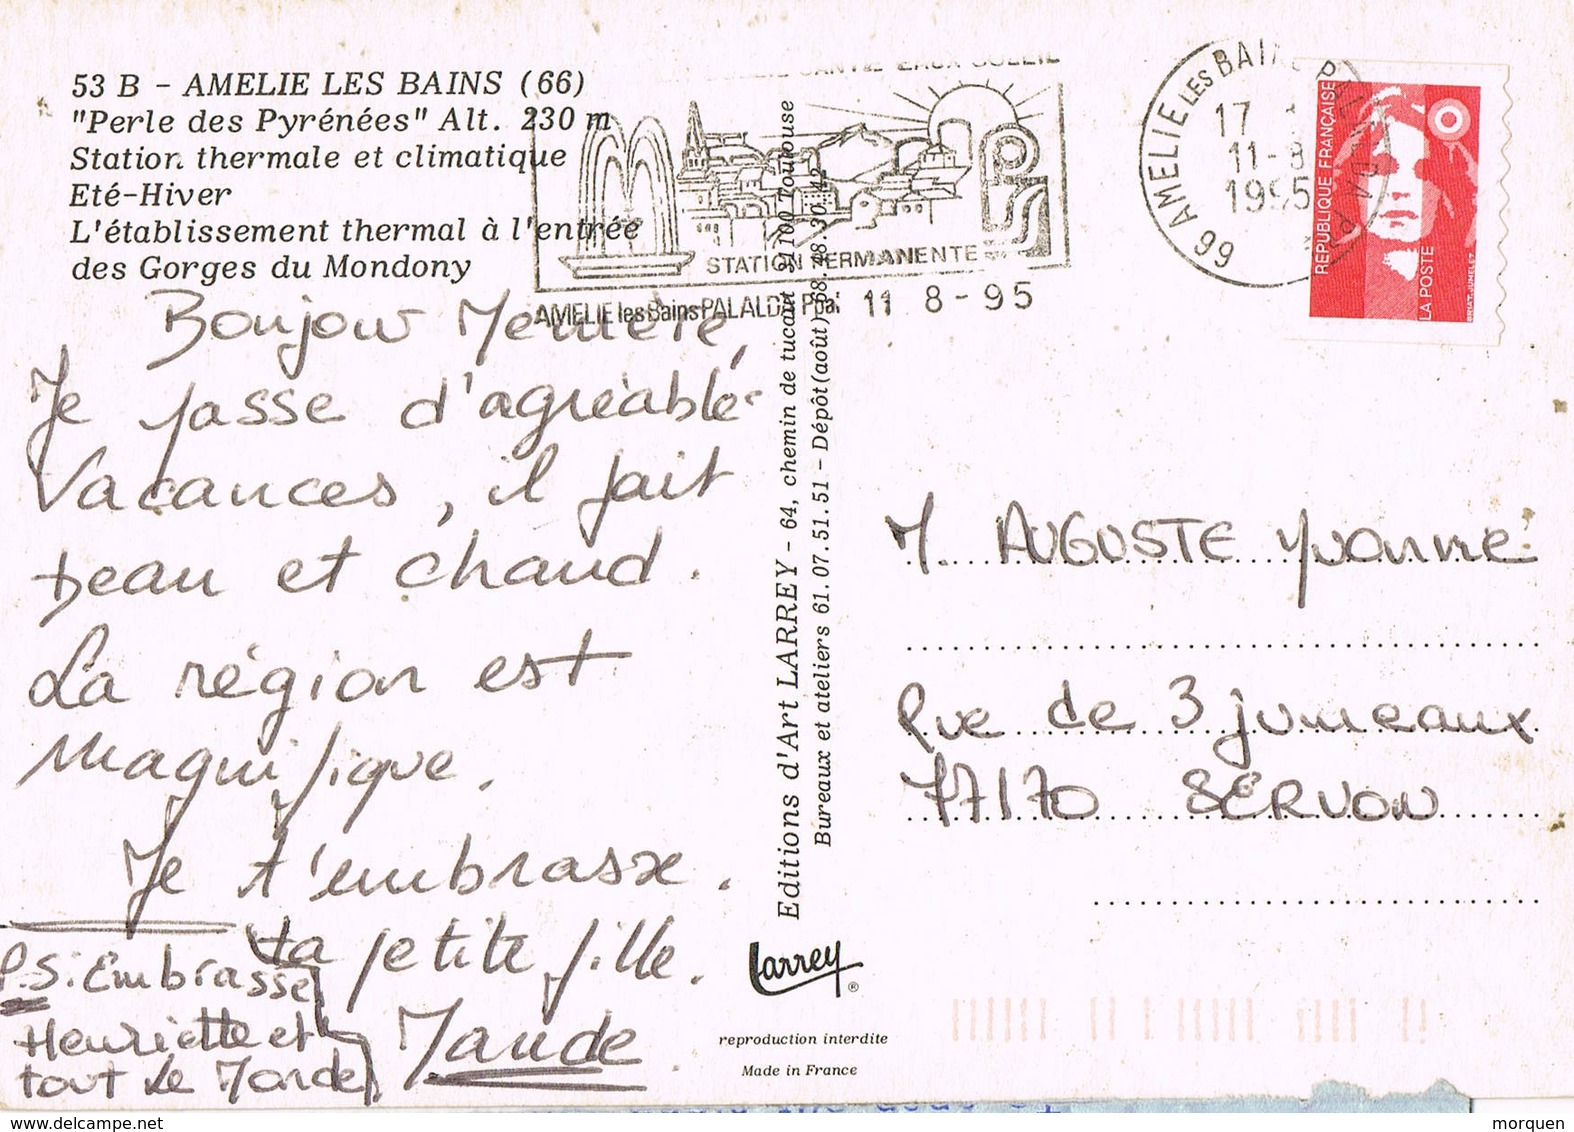 53 B - AMELIE LES BAINS (66)
"Perle des Pyrénées" Alt. 230 m
Station thermale et climatique
Eté-Hiver
L'établissement thermal à l'entrée
des Gorges du Mondony
Bonjour Mémère,
Je passe d'agréable
Vacances, il fait
beau et chaud.
La région est
magnifique.
Je t'embrasse.
ta petite fille.
Maude
P.S: Embrasse
Henriette et
tout le Monde
EAUX SOLEIL
STATION PERMANENTE
AMELIE les Bains PALALDA Ppal 11 8-95
Editions d'Art LARREY - 64, chemin de tucaut 31100 Toulouse
Bureaux et ateliers 61.07.51.51 - Dépôt (août) 68.48.30.42
Larrey ®
reproduction interdite
Made in France
66 AMELIE LES BAINS
17
11-8
1995
REPUBLIQUE FRANÇAISE
LA POSTE
BRIAT. JUMELET
M. AUGUSTE Yvonne
Rue de 3 jumeaux
77170 SERVON
morquen